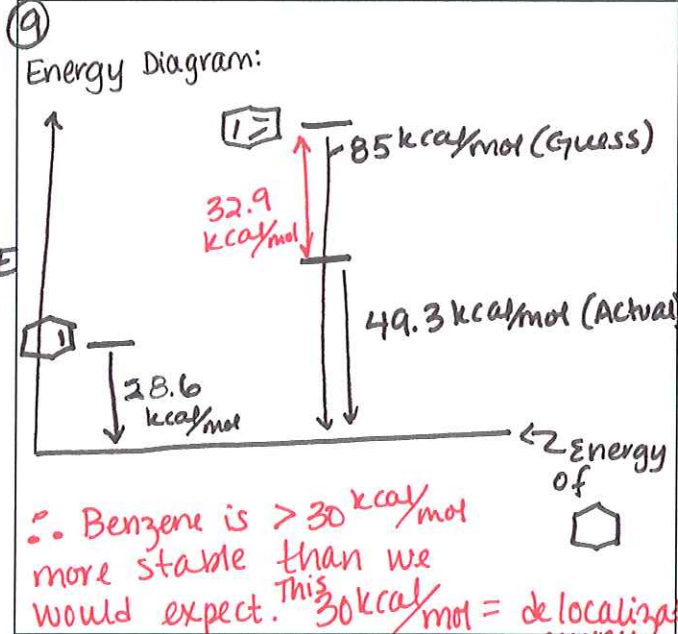 9
Energy Diagram:
85 kcal/mol (Guess)
32.9
kcal/mol
E
49.3 kcal/mol (Actual
28.6
kcal/mol
Energy
of
∴ Benzene is >30 kcal/mol
more stable than we
would expect. This 30 kcal/mol = delocaliza